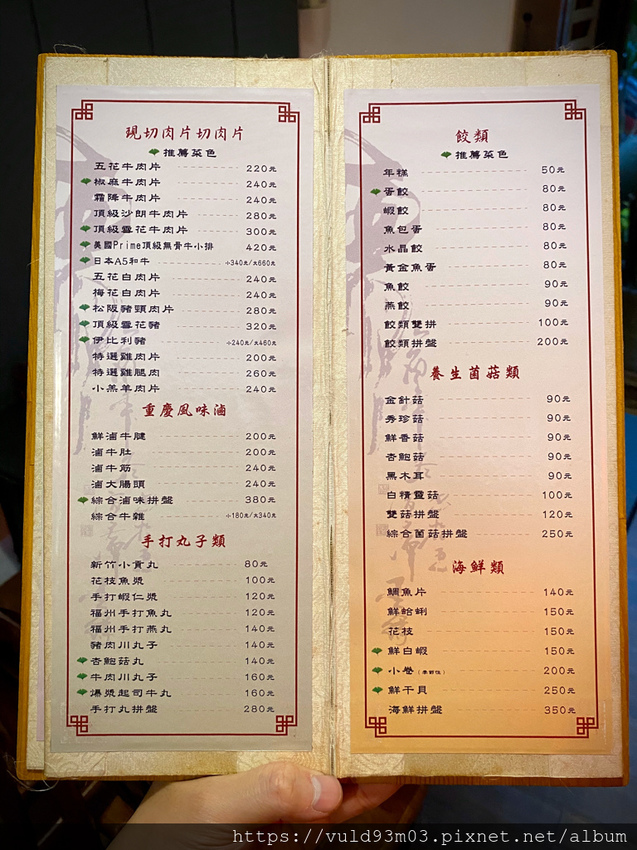 現切肉片切肉片
推薦菜色
五花牛肉片 220元
椒麻牛肉片 240元
霜降牛肉片 240元
頂級沙朗牛肉片 280元
頂級雪花牛肉片 300元
美國Prime頂級無骨牛小排 420元
日本A5和牛 小340元/大660元
五花白肉片 240元
梅花白肉片 240元
松阪豬頸肉片 280元
頂級雪花豬 320元
伊比利豬 小240元/大460元
特選雞肉片 200元
特選雞腿肉 260元
小羔羊肉片 240元
重慶風味滷
鮮滷牛腱 200元
滷牛肚 200元
滷牛筋 240元
滷大腸頭 240元
綜合滷味拼盤 380元
綜合牛雜 小180元/大340元
手打丸子類
新竹小貢丸 80元
花枝魚漿 100元
手打蝦仁漿 120元
福州手打魚丸 120元
福州手打燕丸 140元
豬肉川丸子 140元
杏鮑菇丸 140元
牛肉川丸子 160元
爆漿起司牛丸 160元
手打丸拼盤 280元
餃類
推薦菜色
年糕 50元
蛋餃 80元
蝦餃 80元
魚包蛋 80元
水晶餃 80元
黃金魚蛋 80元
魚餃 90元
燕餃 90元
餃類雙拼 100元
餃類拼盤 200元
養生菌菇類
金針菇 90元
秀珍菇 90元
鮮香菇 90元
杏鮑菇 90元
黑木耳 90元
白精靈菇 100元
雙菇拼盤 120元
綜合菌菇拼盤 250元
海鮮類
鯛魚片 140元
鮮蛤蜊 150元
花枝 150元
鮮白蝦 150元
小卷(季節性) 200元
鮮干貝 250元
海鮮拼盤 350元
https://vuld93m03.pixnet.net/album